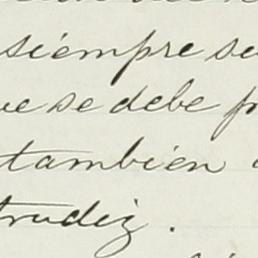 siémpre su
ue se debe p
también
trudiz.